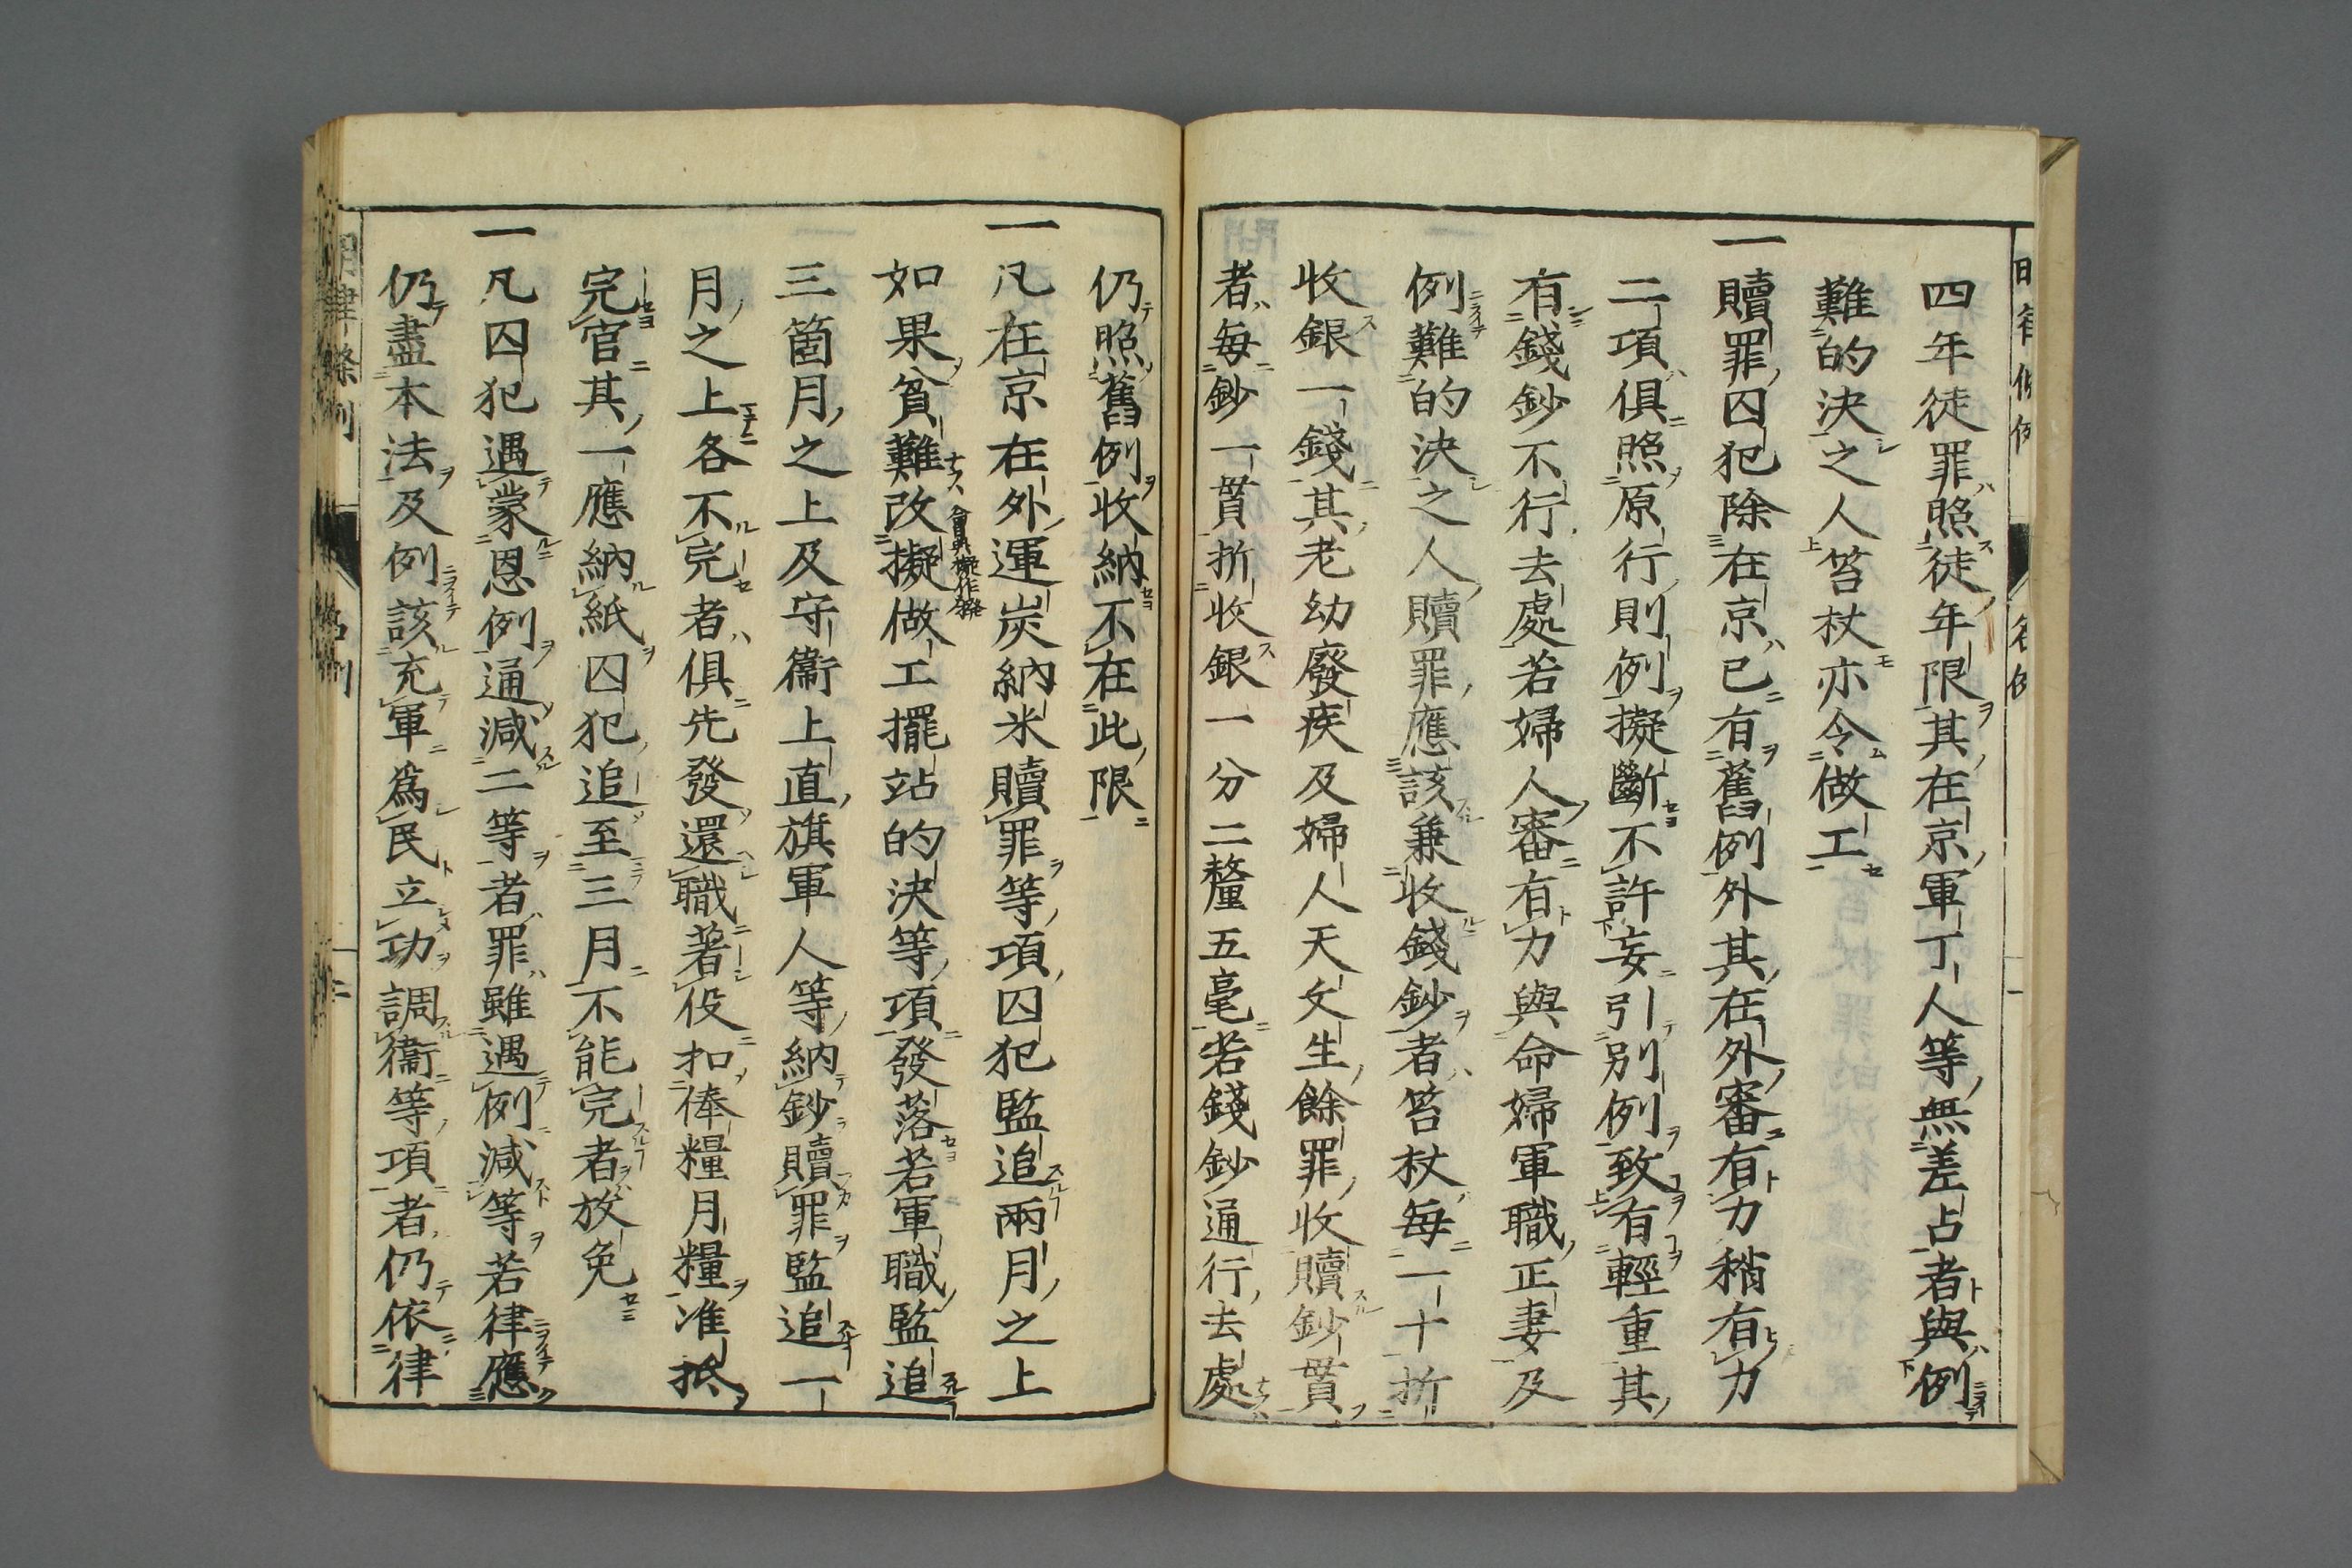 四年徒罪照徒年限其在京軍丁人等無差占者與例
難的決之人笞杖亦令做工
一贖罪囚犯除在京已有舊例外其在外審有力稍有力
二項俱照原行則例擬斷不許妄引別例致有輕重其
有錢鈔不行去處若婦人審有力與命婦軍職正妻及
例難的決之人贖罪應該兼收錢鈔者笞杖每一十折
收銀一錢其老幼廢疾及婦人天文生餘罪收贖鈔貫
者每鈔一貫折收銀一分二釐五毫若錢鈔通行去處
仍照舊例收納不在此限
一凡在京在外運炭納米贖罪等項囚犯監追兩月之上
如果貧難改擬做工擺站的決等項發落若軍職監追
三箇月之上及守衞上直旗軍人等納鈔贖罪監追一
月之上各不完者俱先發還職著役扣俸糧月糧准抵
完官其一應納紙囚犯追至三月不能完者放免
一凡囚犯遇蒙恩例通減二等者罪雖遇例減等若律應
仍盡本法及例該充軍爲民立功調衞等項者仍依律